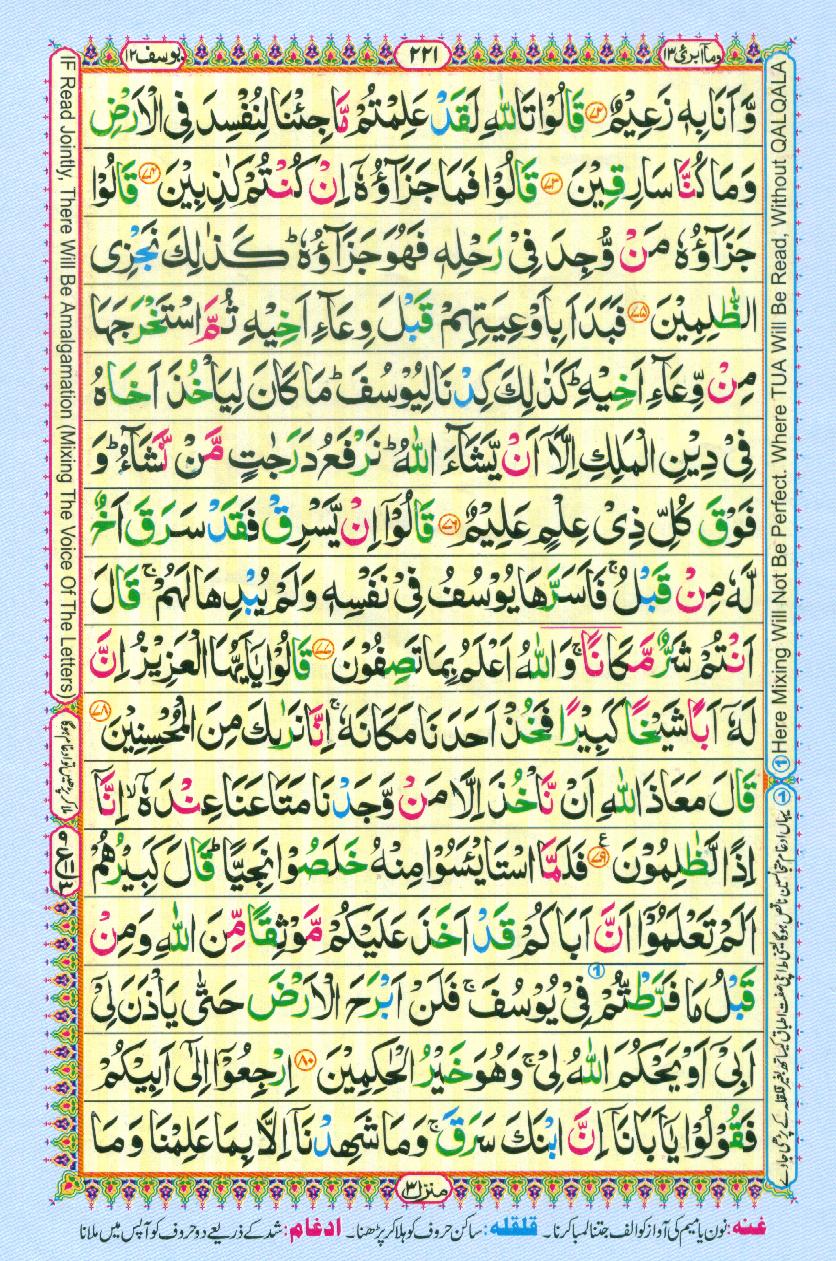 وماابرئ ١٣
٢٢١
يوسف ١٢
وَّ اَنَا بِهٖ زَعِيْمٌ ﴿٧٢﴾ قَالُوْا تَاللّٰهِ لَقَدْ عَلِمْتُمْ مَّا جِئْنَا لِنُفْسِدَ فِى الْاَرْضِ
وَمَا كُنَّا سَارِقِيْنَ ﴿٧٣﴾ قَالُوْا فَمَا جَزَآؤُهٗۤ اِنْ كُنْتُمْ كٰذِبِيْنَ ﴿٧٤﴾ قَالُوْا
جَزَآؤُهٗ مَنْ وُّجِدَ فِىْ رَحْلِهٖ فَهُوَ جَزَآؤُهٗ ؕ كَذٰلِكَ نَجْزِى
الظّٰلِمِيْنَ ﴿٧٥﴾ فَبَدَاَ بِاَوْعِيَتِهِمْ قَبْلَ وِعَآءِ اَخِيْهِ ثُمَّ اسْتَخْرَجَهَا
مِنْ وِّعَآءِ اَخِيْهِ ؕ كَذٰلِكَ كِدْنَا لِيُوْسُفَ ؕ مَا كَانَ لِيَاْخُذَ اَخَاهُ
فِىْ دِيْنِ الْمَلِكِ اِلَّاۤ اَنْ يَّشَآءَ اللّٰهُ ؕ نَرْفَعُ دَرَجٰتٍ مَّنْ نَّشَآءُ ؕ وَ
فَوْقَ كُلِّ ذِىْ عِلْمٍ عَلِيْمٌ ﴿٧٦﴾ قَالُوْۤا اِنْ يَّسْرِقْ فَقَدْ سَرَقَ اَخٌ
لَّهٗ مِنْ قَبْلُ ۚ فَاَسَرَّهَا يُوْسُفُ فِىْ نَفْسِهٖ وَلَمْ يُبْدِهَا لَهُمْ ۚ قَالَ
اَنْتُمْ شَرٌّ مَّكَانًا ۚ وَاللّٰهُ اَعْلَمُ بِمَا تَصِفُوْنَ ﴿٧٧﴾ قَالُوْا يٰۤاَيُّهَا الْعَزِيْزُ اِنَّ
لَهٗۤ اَبًا شَيْخًا كَبِيْرًا فَخُذْ اَحَدَنَا مَكَانَهٗ ۚ اِنَّا نَرٰىكَ مِنَ الْمُحْسِنِيْنَ ﴿٧٨﴾
قَالَ مَعَاذَ اللّٰهِ اَنْ نَّاْخُذَ اِلَّا مَنْ وَّجَدْنَا مَتَاعَنَا عِنْدَهٗۤ ۙ اِنَّاۤ
اِذًا لَّظٰلِمُوْنَ ﴿٧٩﴾ ع فَلَمَّا اسْتَايْئَسُوْا مِنْهُ خَلَصُوْا نَجِيًّا ؕ قَالَ كَبِيْرُهُمْ
اَلَمْ تَعْلَمُوْۤا اَنَّ اَبَاكُمْ قَدْ اَخَذَ عَلَيْكُمْ مَّوْثِقًا مِّنَ اللّٰهِ وَمِنْ
قَبْلُ مَا فَرَّطْتُّمْ ① فِىْ يُوْسُفَ ۚ فَلَنْ اَبْرَحَ الْاَرْضَ حَتّٰى يَاْذَنَ لِىْۤ
اَبِىْۤ اَوْ يَحْكُمَ اللّٰهُ لِىْ ۚ وَهُوَ خَيْرُ الْحٰكِمِيْنَ ﴿٨٠﴾ اِرْجِعُوْۤا اِلٰٓى اَبِيْكُمْ
فَقُوْلُوْا يٰۤاَبَانَاۤ اِنَّ ابْنَكَ سَرَقَ ۚ وَمَا شَهِدْنَاۤ اِلَّا بِمَا عَلِمْنَا وَمَا
منزل ٣
غنه: نون یا میم کی آواز کو الف جتنا لمبا کرنا۔ قلقله: ساکن حروف کو ہلا کر پڑھنا۔ ادغام: شد کے ذریعے دو حروف کو آپس میں ملانا
① Here Mixing Will Not Be Perfect. Where TUA Will Be Read, Without QALQALA
IF Read Jointly, There Will Be Amalgamation (Mixing The Voice Of The Letters)
ملا کر پڑھیں تو ادغام ہوگا